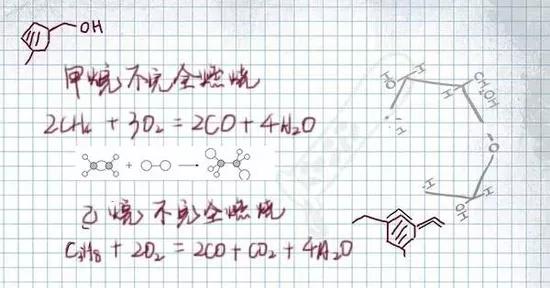 OH
甲烷不完全燃烧
2CH₄ + 3O₂ = 2CO + 4H₂O
+ →
乙烷不完全燃烧
C₃H₈ + 2O₂ = 2CO + CO₂ + 4H₂O
H
H
CH₂OH
O
H
H
OH